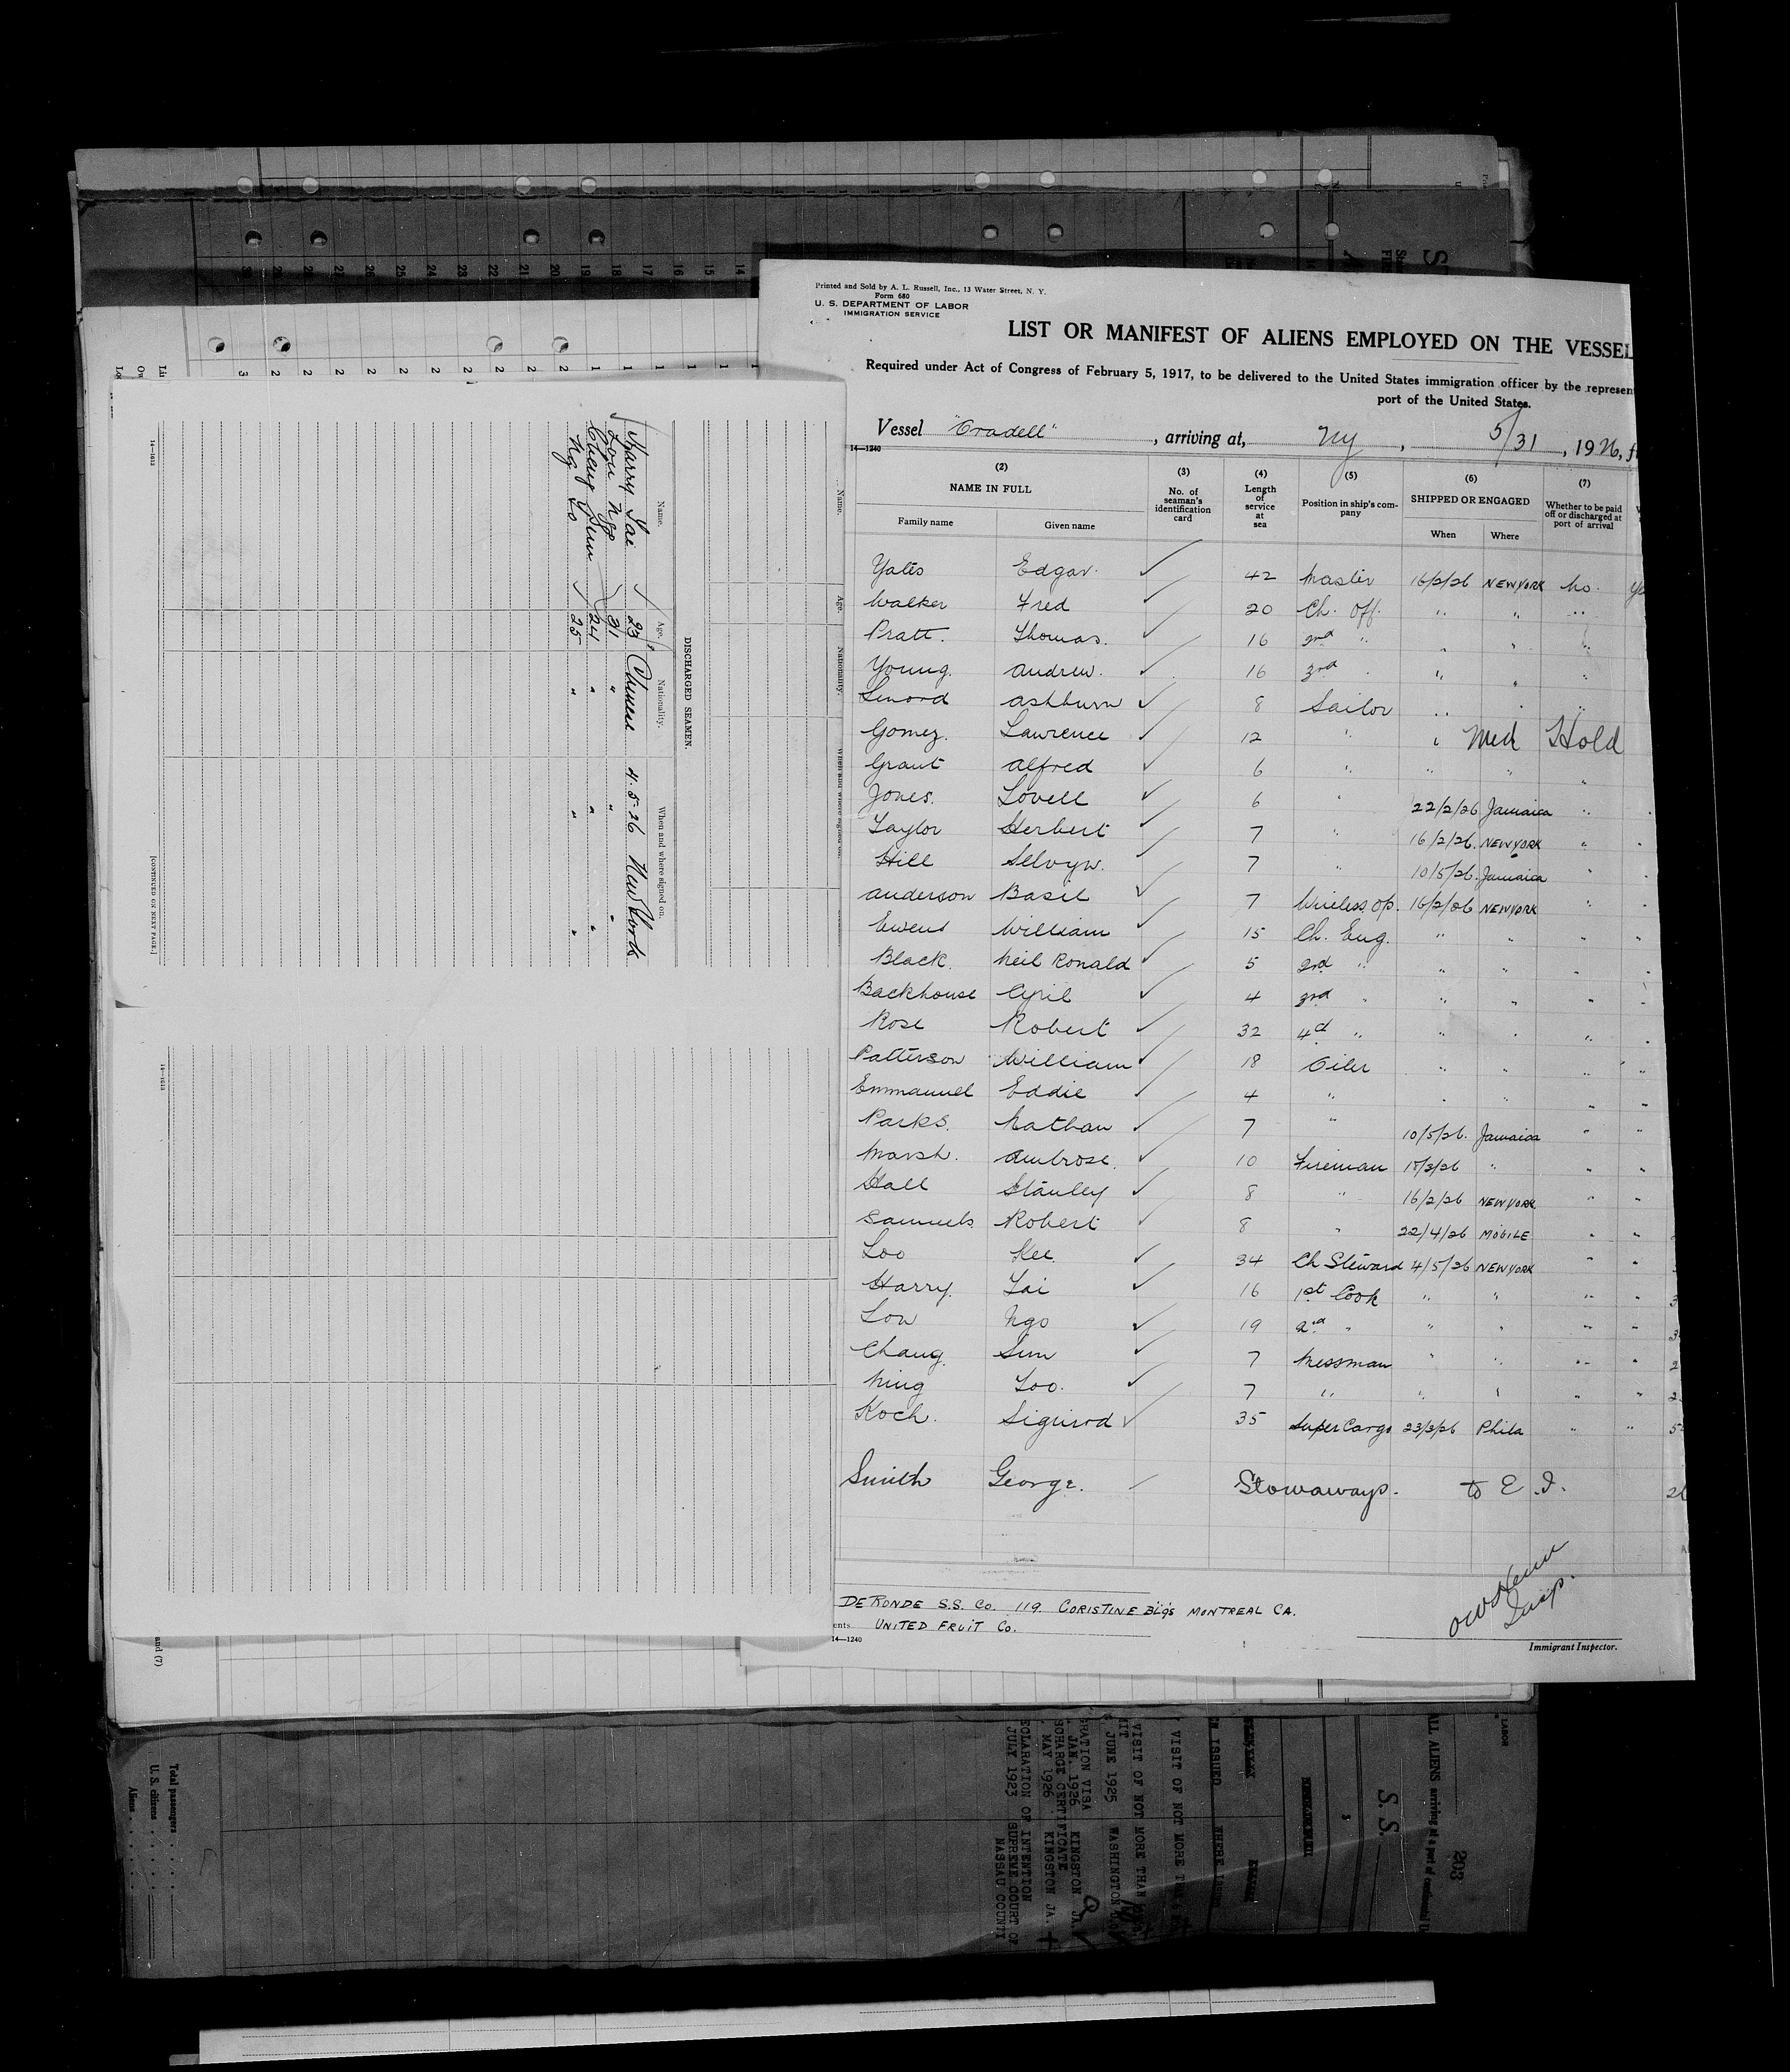 Printed and Sold by A. L. Russell, Inc., 13 Water Street, N. Y.
Form 680
U. S. DEPARTMENT OF LABOR
IMMIGRATION SERVICE
LIST OR MANIFEST OF ALIENS EMPLOYED ON THE VESSEL
Required under Act of Congress of February 5, 1917, to be delivered to the United States immigration officer by the represen
port of the United States.
Vessel "Oradell", arriving at, Ny, 5/31, 1926, f
14—1240
(2) (3) (4) (5) (6) (7)
NAME IN FULL No. of seaman's identification card Length of service at sea Position in ship's company SHIPPED OR ENGAGED Whether to be paid off or discharged at port of arrival
Family name Given name When Where
Yates Edgar. ✓ 42 Master 16/2/26 NEW YORK No.
Walker Fred ✓ 20 Ch. Off. " " "
Pratt. Thomas. ✓ 16 2nd " " " "
Young. Andrew. ✓ 16 3rd " " "
Senord Ashburn ✓ 8 Sailor " " "
Gomez. Lawrence ✓ 12 " " Med Hold
Grant Alfred ✓ 6 " " " "
Jones. Lovell ✓ 6 " 22/2/26 Jamaica "
Taylor Herbert ✓ 7 " 16/2/26. NEW YORK "
Hill Selvyn. ✓ 7 " 10/5/26. Jamaica "
Anderson Basil ✓ 7 Wireless Op. 16/2/26 NEW YORK "
Ewens William ✓ 15 Ch. Eng. " " "
Black. Neil Ronald ✓ 5 2nd " " " "
Backhouse Cyril ✓ 4 3rd " " " "
Rose Robert ✓ 32 4th " " " "
Patterson William ✓ 18 Oiler " " "
Emmanuel Eddie ✓ 4 " " " "
Parks. Nathan ✓ 7 " 10/5/26. Jamaica "
Marsh. Ambrose. ✓ 10 Fireman 18/3/26 " "
Hall Stanley ✓ 8 " 16/2/26 NEW YORK "
Samuels Robert ✓ 8 " 22/4/26 MOBILE "
Loo Kee ✓ 34 Ch Steward 4/5/26 NEW YORK "
Harry. Lai ✓ 16 1st Cook " " "
Low Ngo ✓ 19 2nd " " " "
Chang. Sun ✓ 7 Messman " " "
Ning Loo. ✓ 7 " " " "
Koch. Sigurd ✓ 35 Super Cargo 23/3/26 Phila "
Smith George. Stowaways. to E. I.
DE RONDE S.S. Co. 119. CORISTINE Bldgs MONTREAL CA.
ents UNITED FRUIT Co.
14—1240
Insp.
Immigrant Inspector.
DISCHARGED SEAMEN.
Name. Age. Nationality. When and where signed on.
Harry Lai 23 Chinese 4.5.26 New York
Lou Ngo 31 " " "
Chang Sun 24 " " "
Ng Lo 25 " " "
14—1613
[CONTINUED ON NEXT PAGE.]
Name. Age. Nationality.
14—1613
and (7)
30 29 28 27 26 25 24 23 22 21 20 19 18 17 16 15 14
LABOR
ALL ALIENS arriving at a port of
203
S. S.
WHERE ISSUED
VISIT OF NOT MORE THAN
VISIT OF NOT MORE THAN
JUNE 1925 WASHINGTON
GRATION VISA
JAN. 1926 KINGSTON JA.
SCHARGE CERTIFICATE
MAY 1926 KINGSTON JA.
ECLARATION OF INTENTION
JULY 1923 SUPREME COURT OF
NASSAU COUNTY
Total passengers
U. S. citizens
Aliens